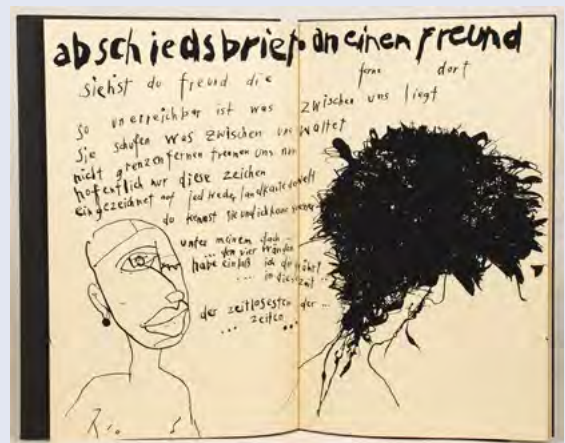 abschiedsbrief an einen freund
siehst du freund die ferne dort
so unerreichbar ist was zwischen uns liegt
sie schufen was zwischen uns waltet
nicht grenzenfernen trennen uns nur
hofentlich nur diese zeichen
eingezeichnet auf jedweder landkarte der welt
du kennst sie und ich kenne
unter meinem dach ...
... den vier wänden
habe ich
... in dieser zeit ...
der zeitlosesten der ...
... zeiten ...